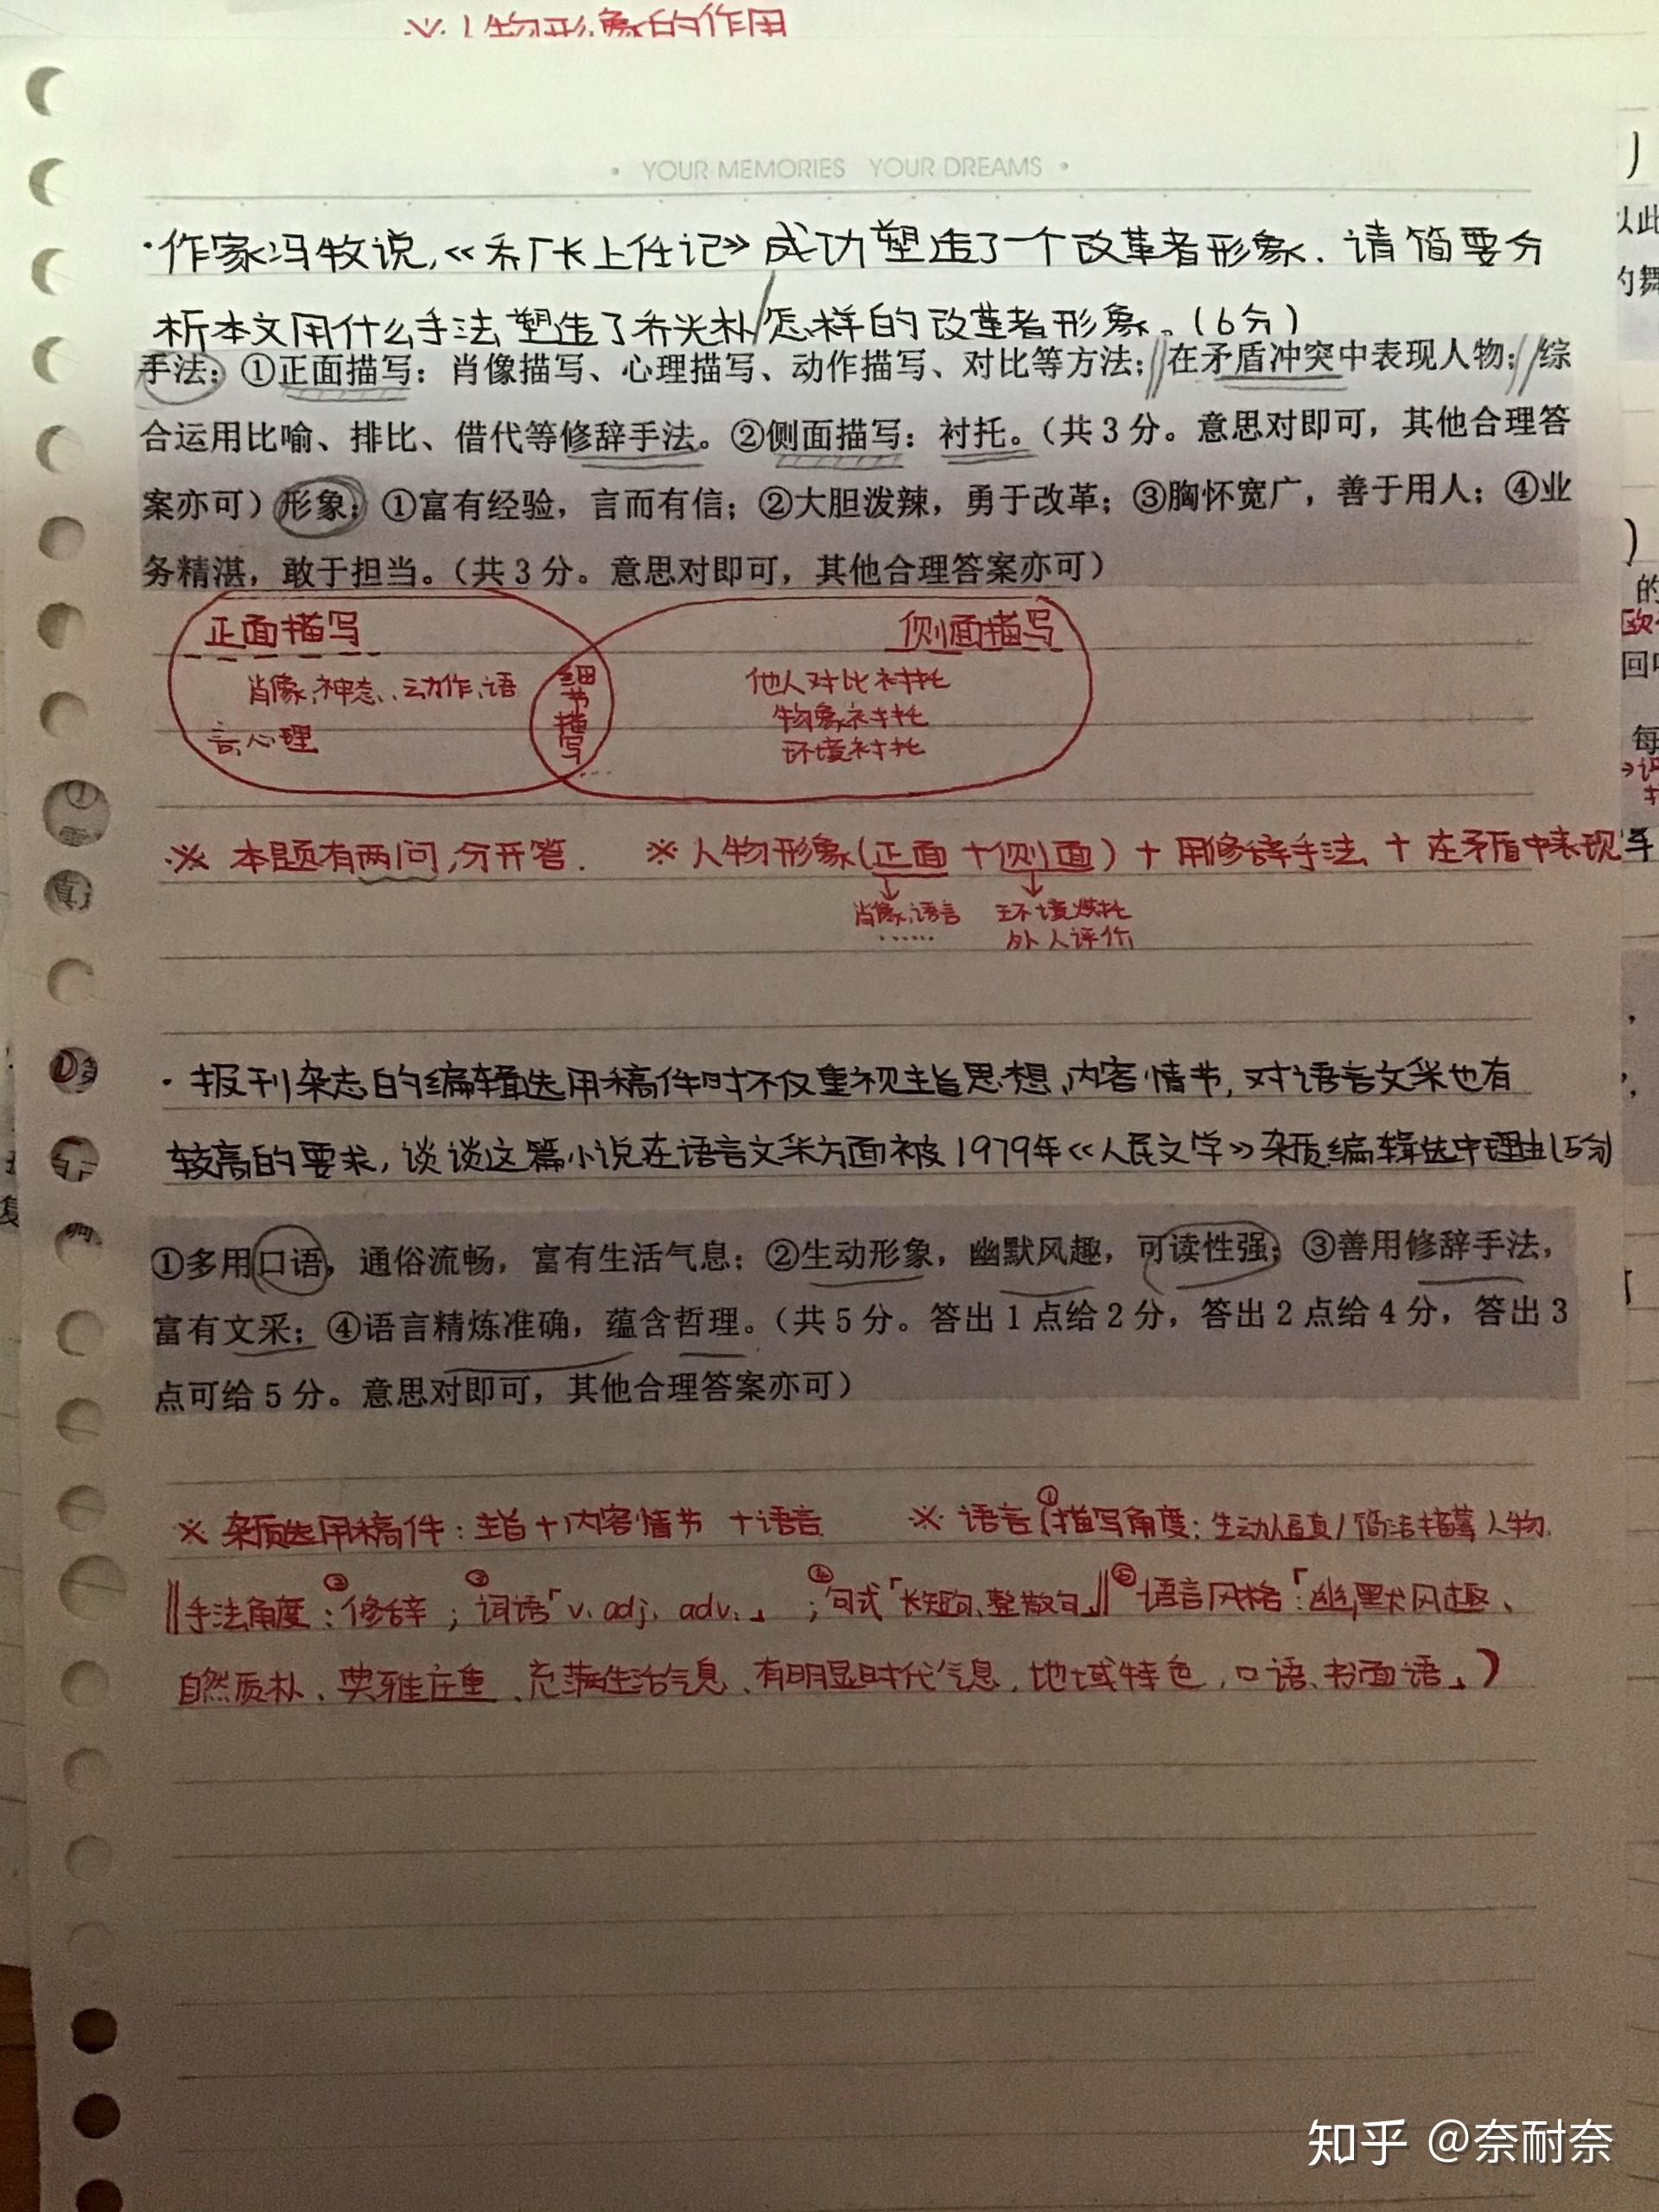 ※人物形象的作用
· YOUR MEMORIES YOUR DREAMS ·
·作家冯牧说,《乔厂长上任记》成功塑造了一个改革者形象. 请简要分
析本文用什么手法塑造了乔光朴/怎样的改革者形象。(6分)
手法：①正面描写：肖像描写、心理描写、动作描写、对比等方法；在矛盾冲突中表现人物；综
合运用比喻、排比、借代等修辞手法。②侧面描写：衬托。（共3分。意思对即可，其他合理答
案亦可）形象：①富有经验，言而有信；②大胆泼辣，勇于改革；③胸怀宽广，善于用人；④业
务精湛，敢于担当。（共3分。意思对即可，其他合理答案亦可）
正面描写
肖像、神态、动作、语
言、心理
细节描写
侧面描写
他人对比衬托
物象衬托
环境衬托
※ 本题有两问,分开答. ※人物形象(正面+侧面)+用修辞手法+在矛盾中表现
肖像、语言 环境烘托
…… 外人评价
·报刊杂志的编辑选用稿件时不仅重视主旨思想、内容情节,对语言文采也有
较高的要求,谈谈这篇小说在语言文采方面被1979年《人民文学》杂质编辑选中理由(5分)
①多用口语，通俗流畅，富有生活气息；②生动形象，幽默风趣，可读性强；③善用修辞手法，
富有文采；④语言精炼准确，蕴含哲理。（共5分。答出1点给2分，答出2点给4分，答出3
点可给5分。意思对即可，其他合理答案亦可）
※ 杂质选用稿件：主旨+内容情节+语言 ※ 语言(①描写角度：生动逼真/简洁描摹人物.
‖手法角度：②修辞；③词语「v. adj. adv.」；④句式「长短句、整散句」‖⑤语言风格：「幽默风趣、
自然质朴、典雅庄重、充满生活气息、有明显时代气息、地域特色,口语、书面语」)
知乎 @奈耐奈